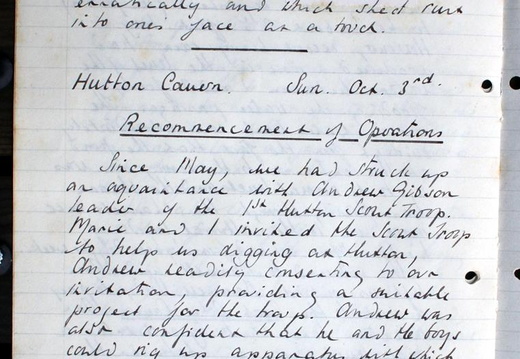 erratically and which shed rust
into ones face at a touch.
Hutton Cavern. Sun. Oct. 3rd.
Recommencement of Operations
Since May, we had struck up
an aquaintance with Andrew Gibson
leader of the 1st Hutton Scout Troop.
Marie and I invited the Scout Troop
to help us digging at Hutton,
Andrew readily consenting to our
invitation, providing a suitable
project for the troop. Andrew was
also confident that he and the boys
could rig up apparatus with which